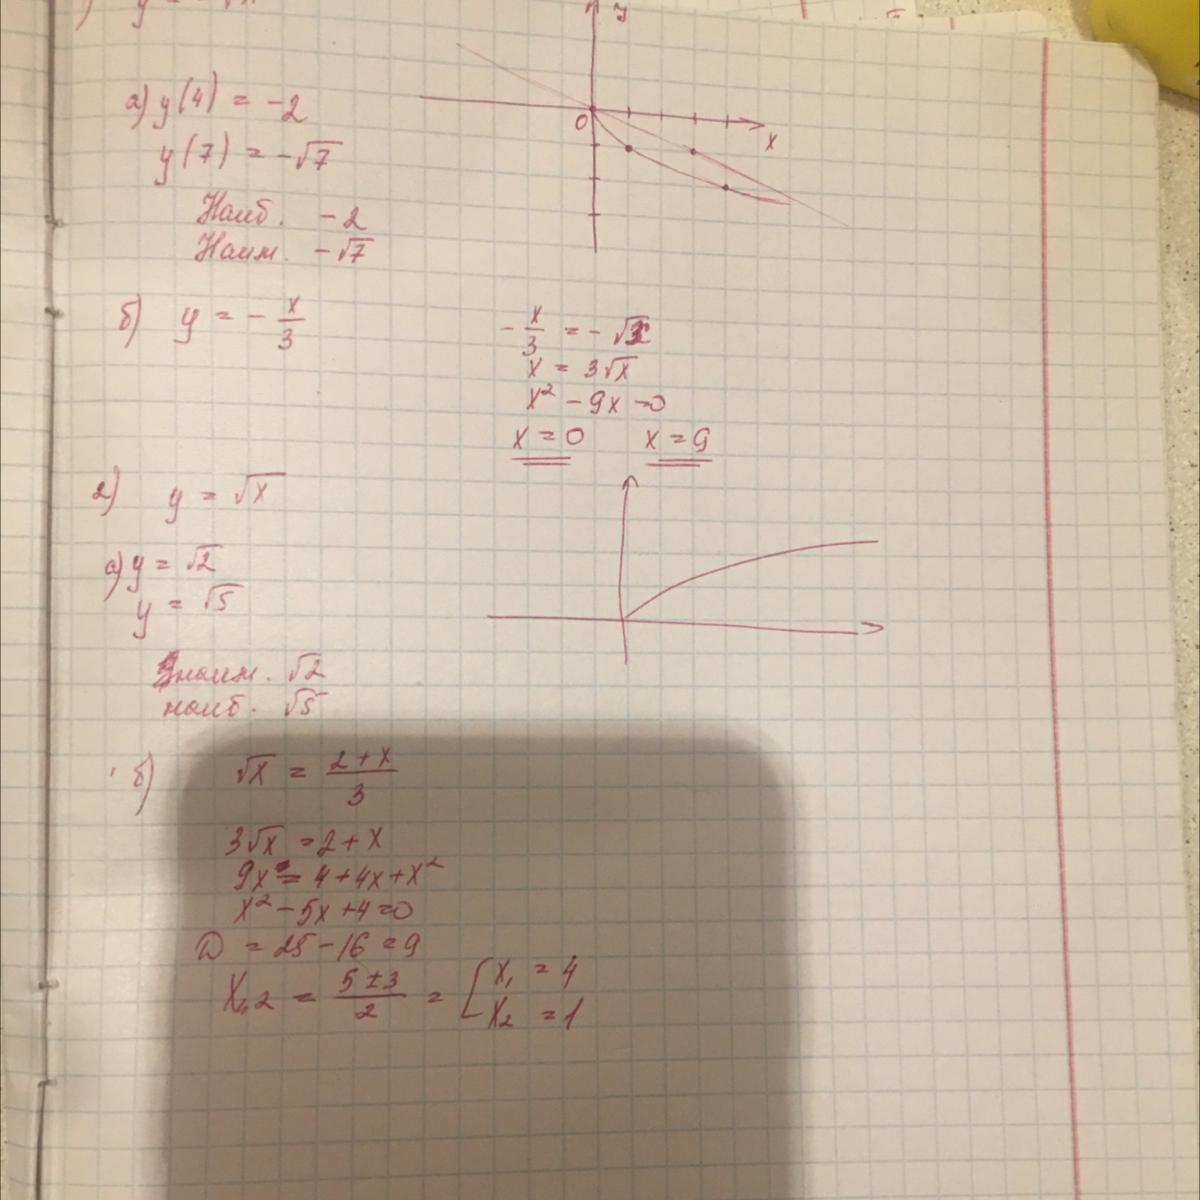 а) y(4) = -2
y(7) = -√7
Наиб. -2
Наим. -√7
y
0
x
б) y = - x/3
- x/3 = - √x
x = 3√x
x² - 9x = 0
x = 0 x = 9
2) y = √x
а) y = √2
y = √5
наим. √2
наиб. √5
б) √x = (2 + x)/3
3√x = 2 + x
9x = 4 + 4x + x²
x² - 5x + 4 = 0
D = 25 - 16 = 9
X1,2 = (5 ± 3)/2 = [ x₁ = 4
x₂ = 1